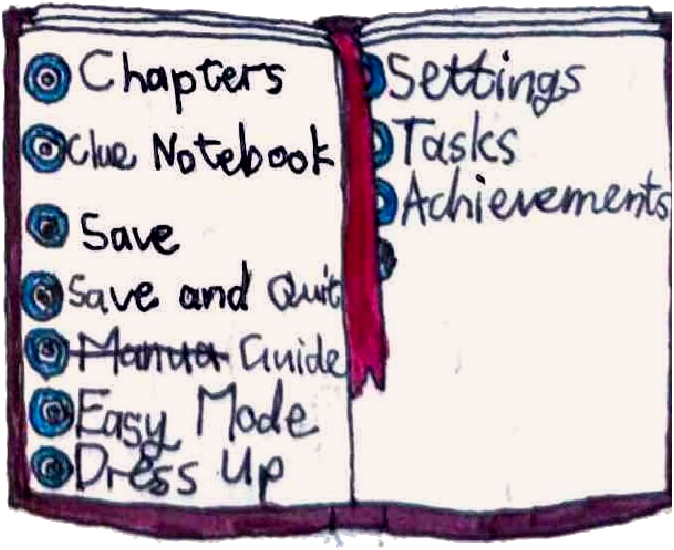 Chapters
Clue Notebook
Save
Save and Quit
Manua Guide
Easy Mode
Dress Up
Settings
Tasks
Achievements